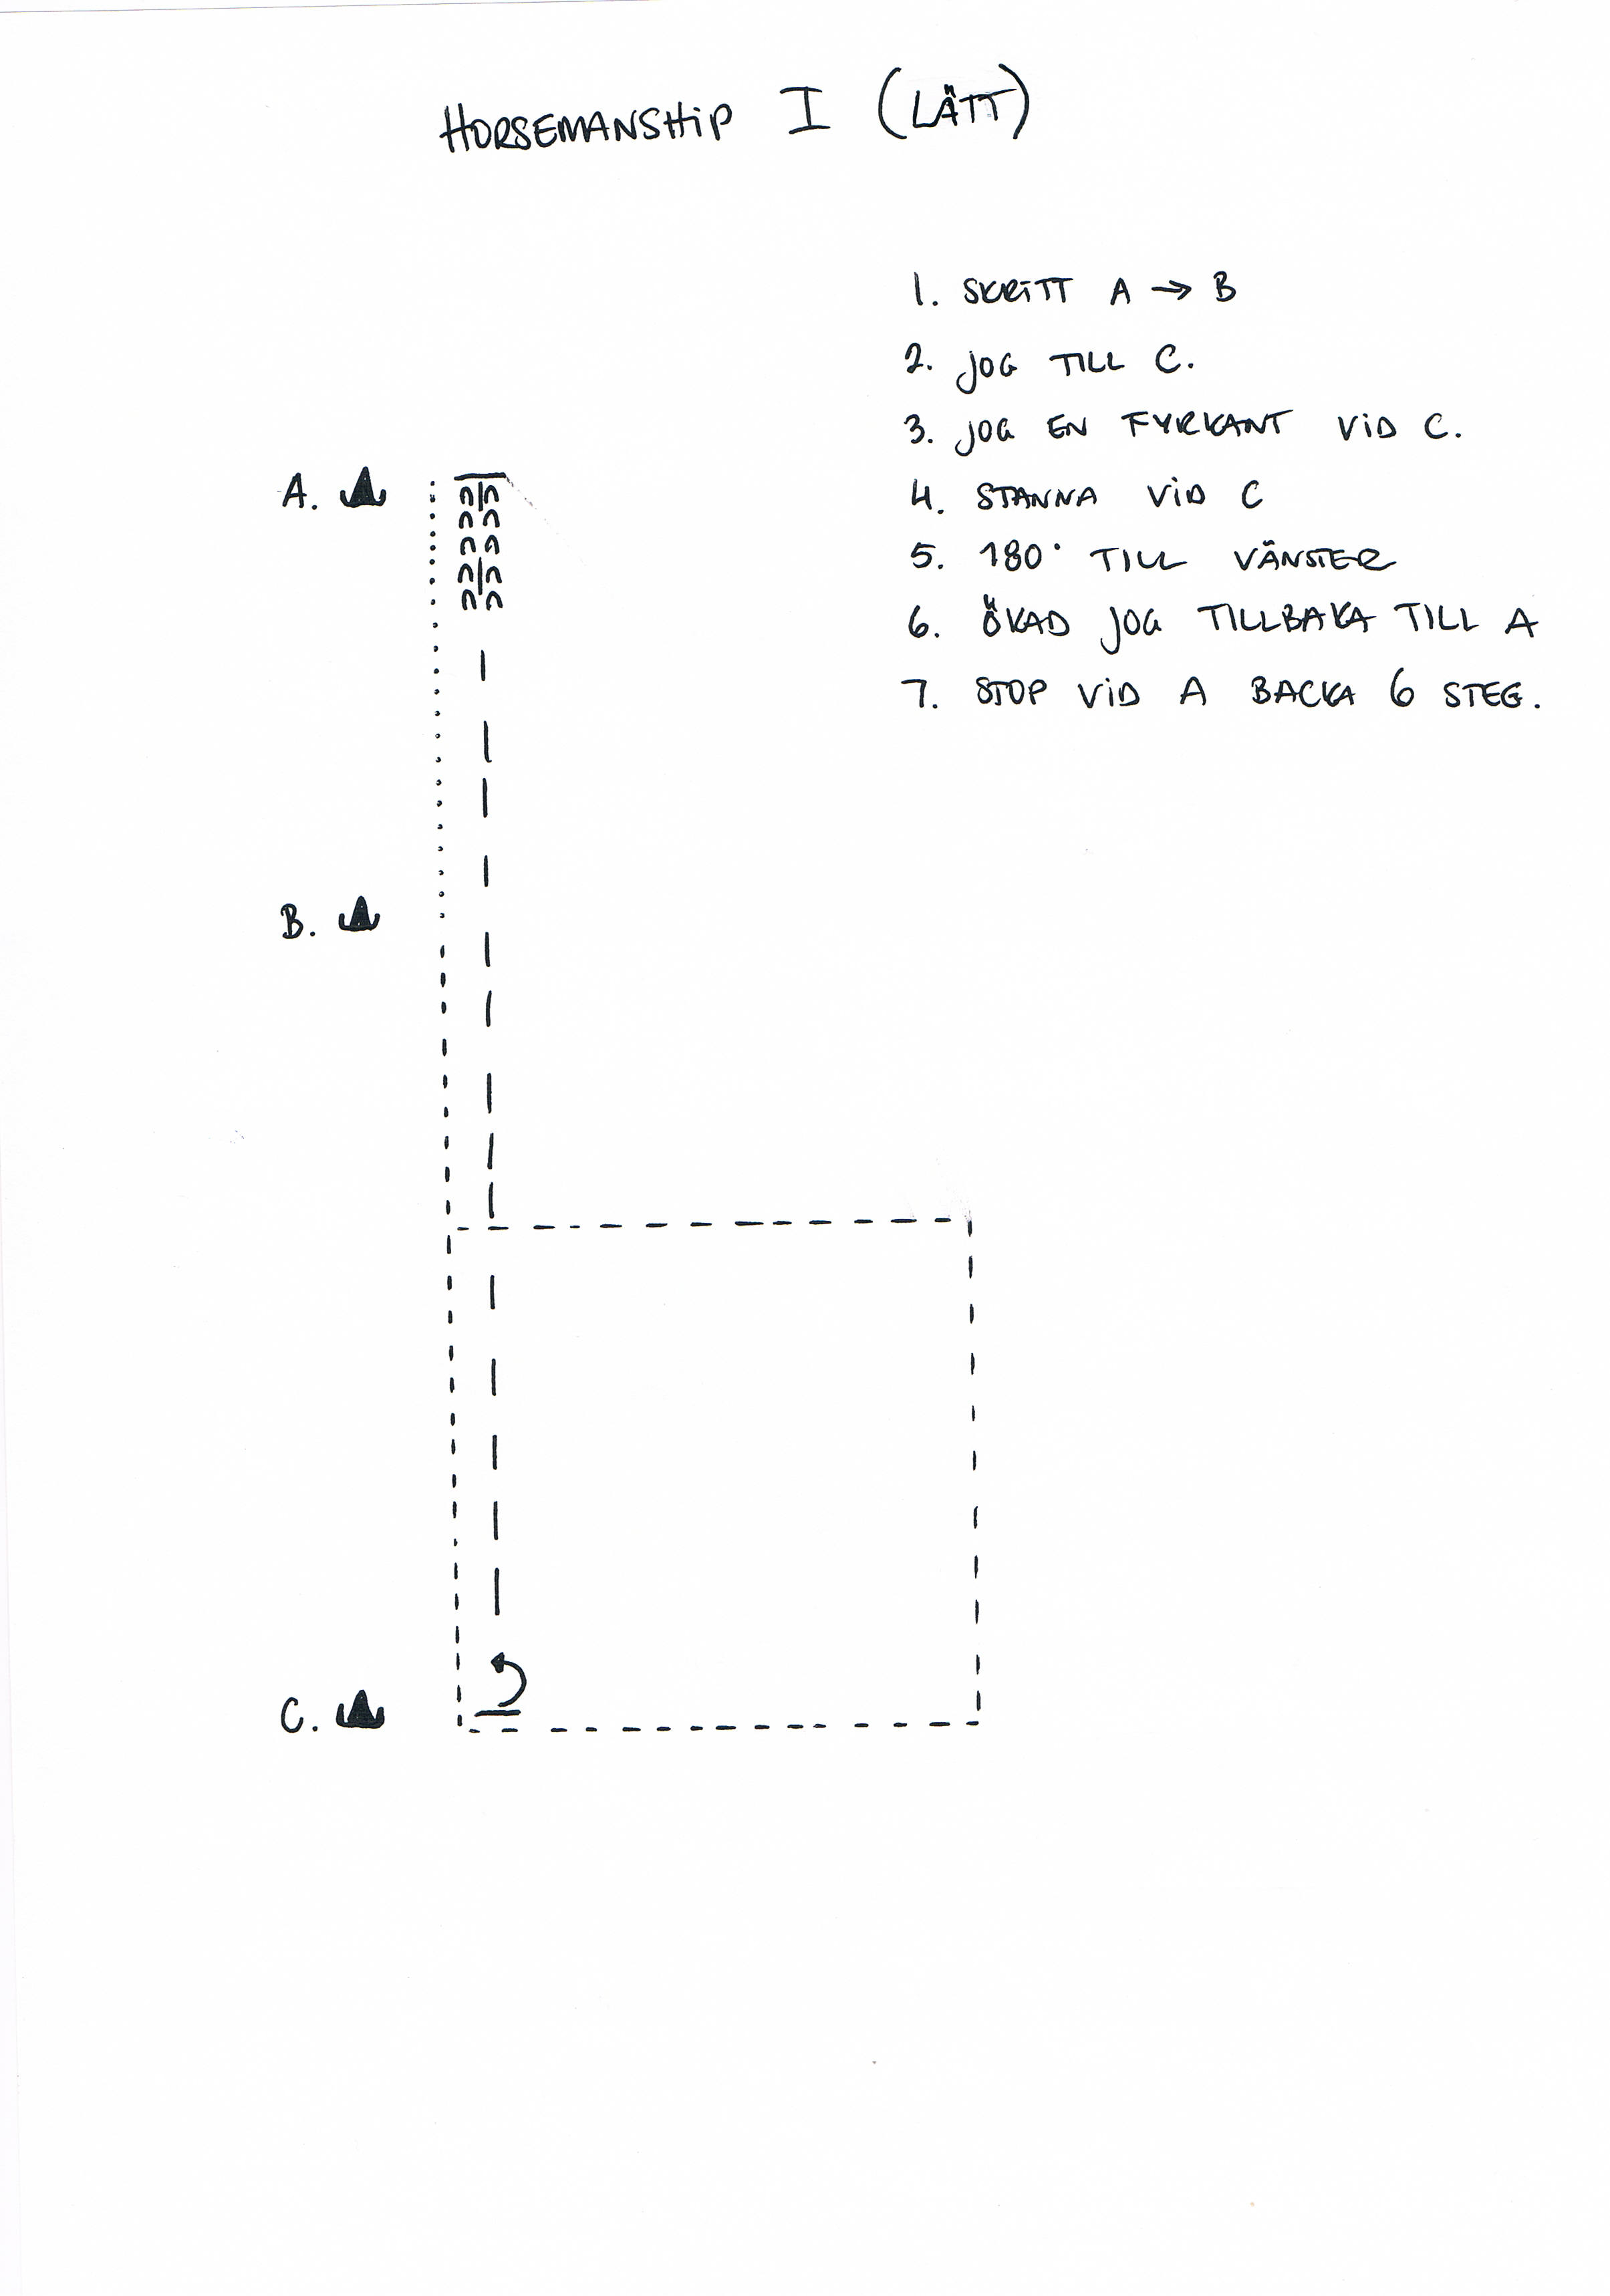 HORSEMANSHIP I (LÄTT)
1. SKRITT A → B
2. JOG TILL C.
3. JOG EN FYRKANT VID C.
4. STANNA VID C
5. 180° TILL VÄNSTER
6. ÖKAD JOG TILLBAKA TILL A
7. STOP VID A BACKA 6 STEG.
A.
B.
C.